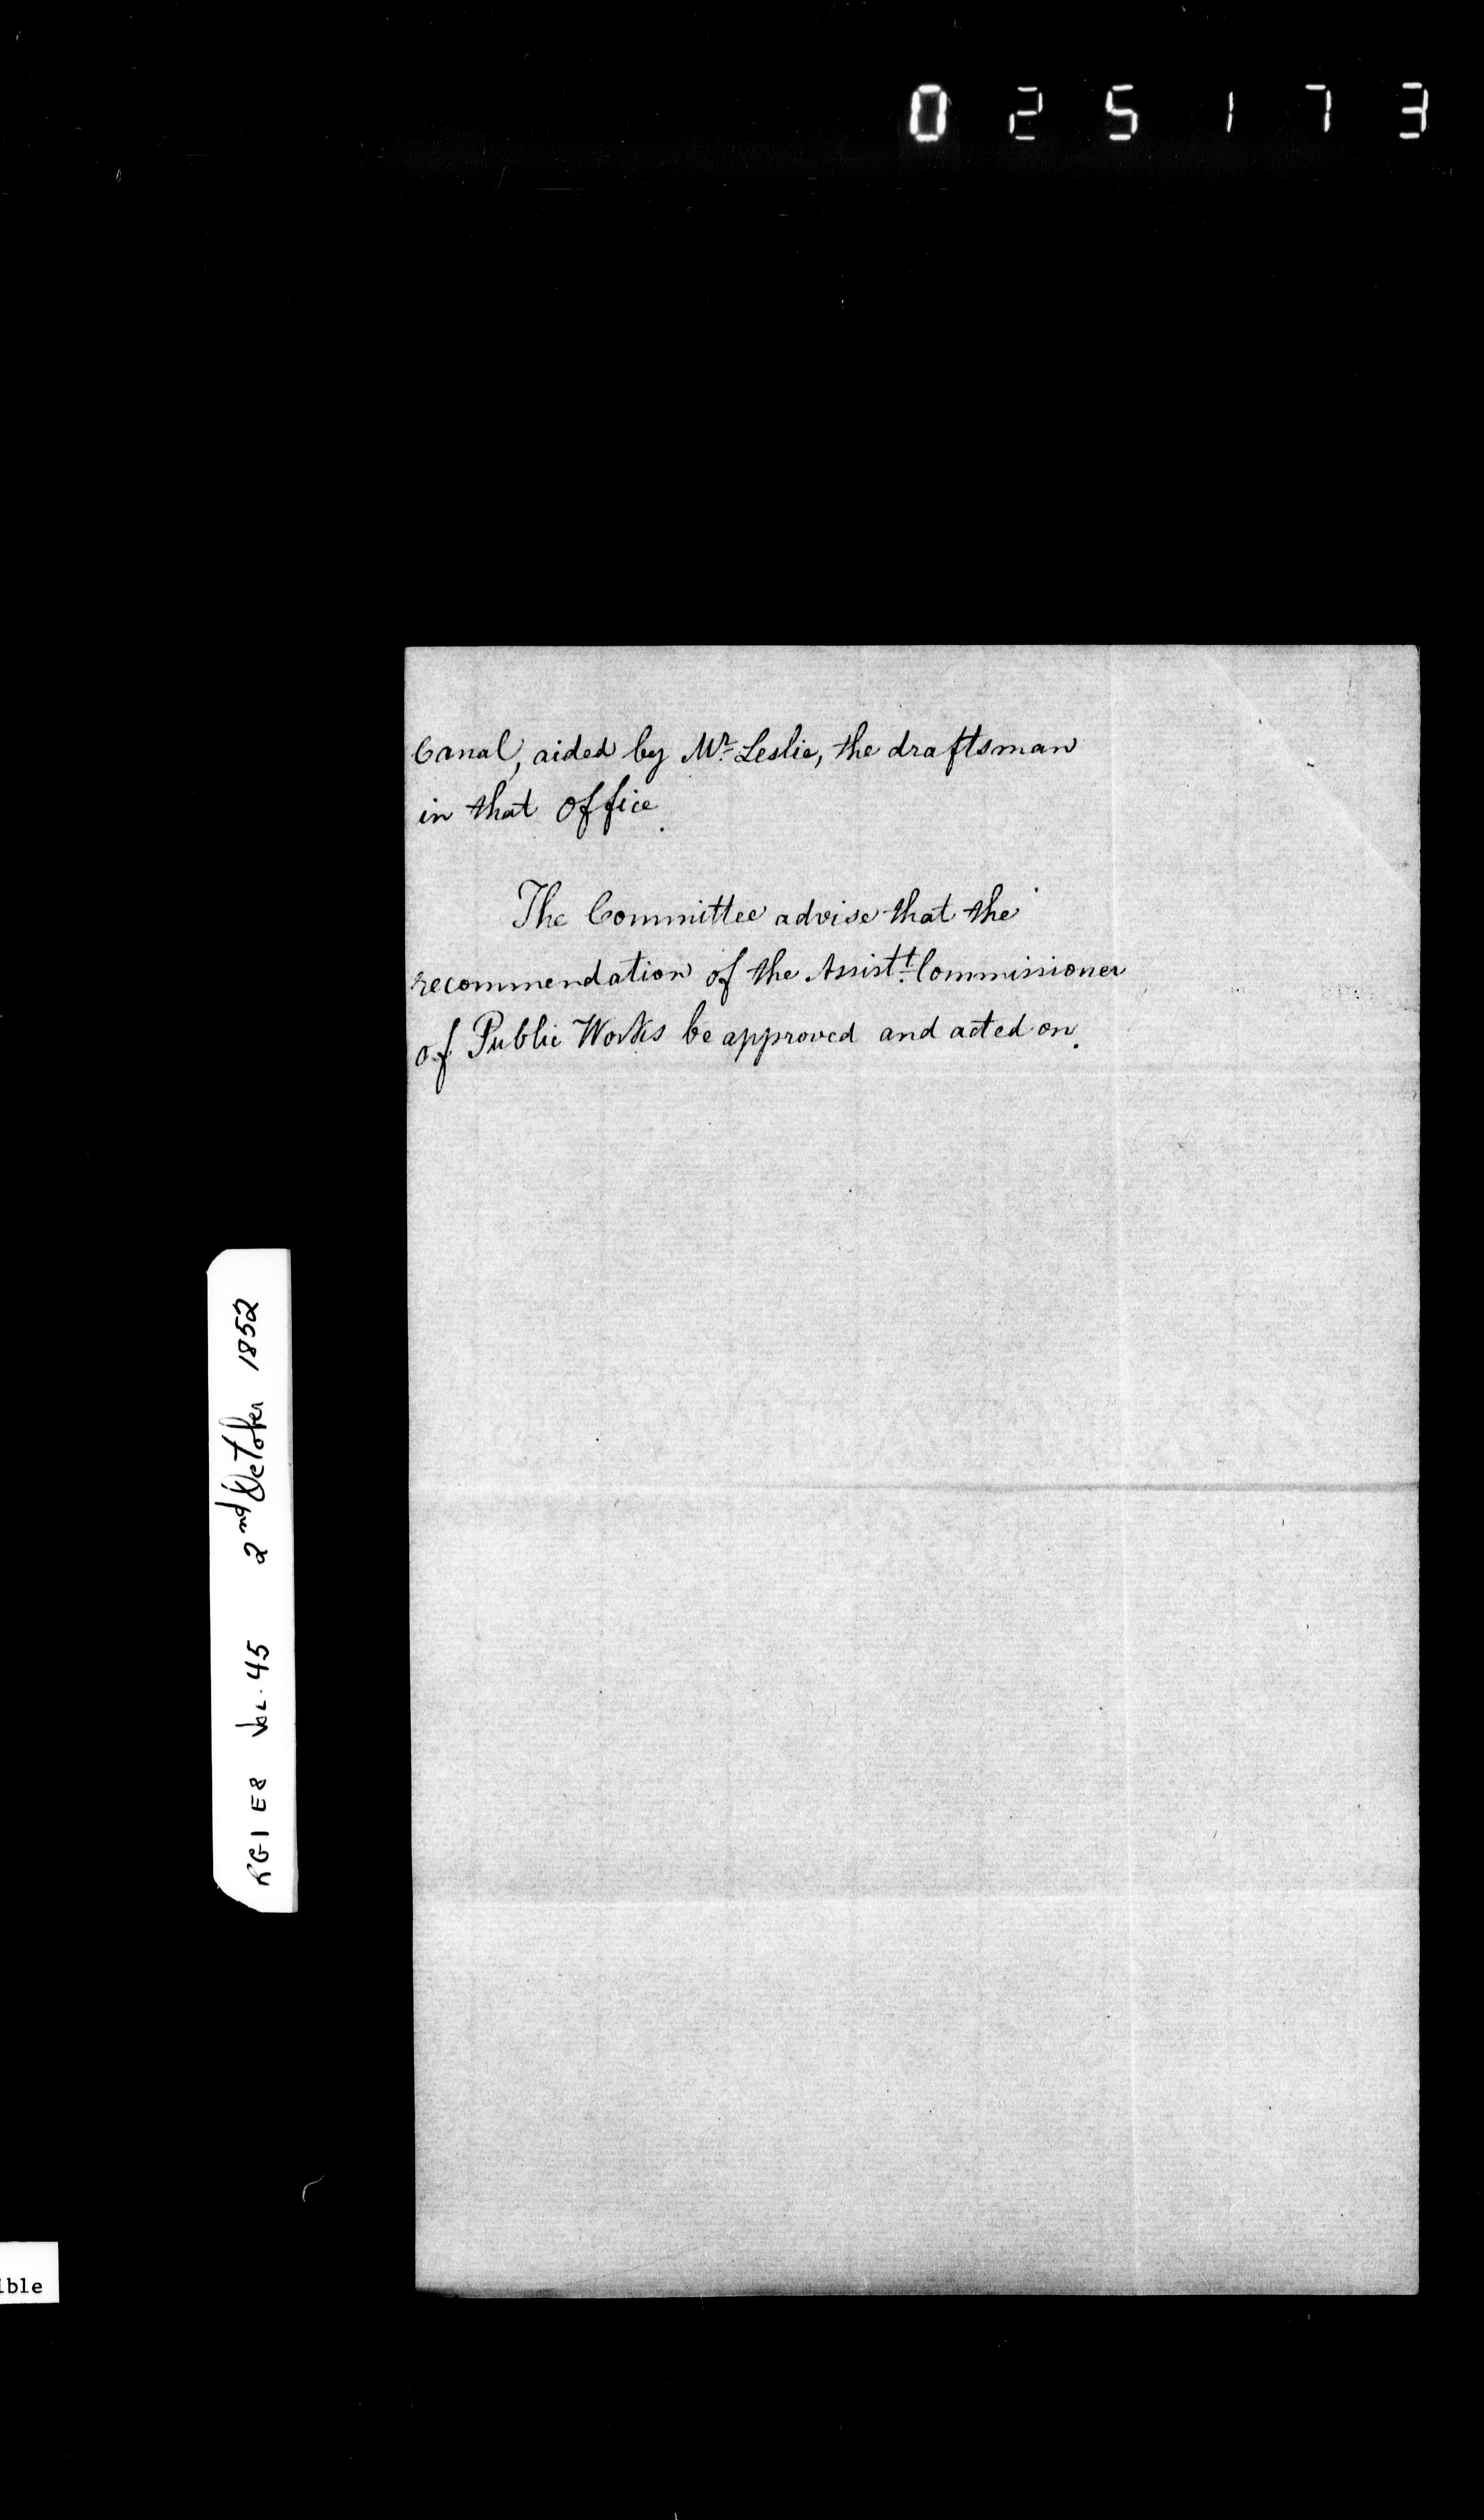 025173
Canal, aided by Mr. Leslie, the draftsman
in that Office.
The Committee advise that the
recommendation of the Assistt. Commissioner
of Public Works be approved and acted on.
RG1 E8 Vol. 45 2nd October 1852
ible